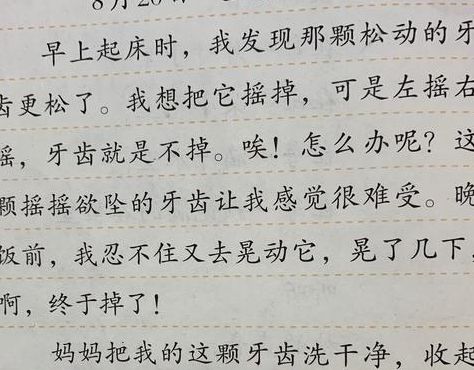 8月20
早上起床时，我发现那颗松动的牙
齿更松了。我想把它摇掉，可是左摇右
摇，牙齿就是不掉。唉！怎么办呢？这
颗摇摇欲坠的牙齿让我感觉很难受。晚
饭前，我忍不住又去晃动它，晃了几下，
啊，终于掉了！
妈妈把我的这颗牙齿洗干净，收起